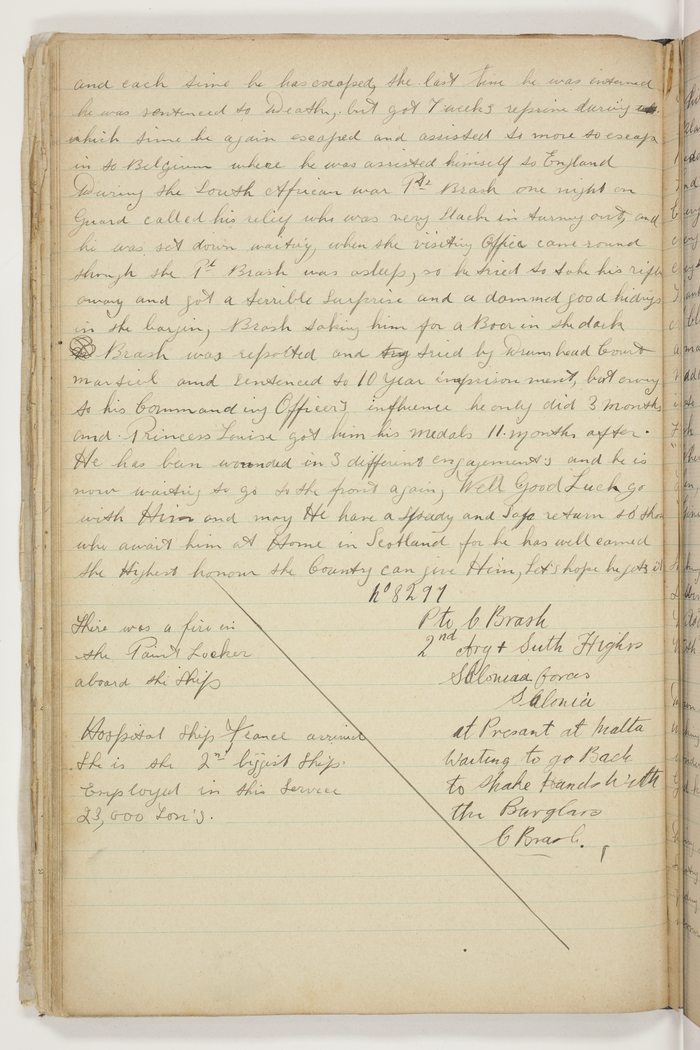 and each time he has escaped, the last time he was interned
he was sentenced to Death, but got 7 weeks reprieve during
which time he again escaped and assisted to more to escape
in to Belgium where he was assisted himself to England
During the South African war Pte Brash one night on
Guard called his relief who was very slack in turning out, and
he was sat down waiting, when the visiting Officer came round
though the Pt Brash was asleep, so he tried to take his rifle
away and got a terrible surprise and a dammed good hiding
in the bargin, Brash taking him for a Boer in the dark
Brash was repolted and tried by Drumshead Court
martiel and sentenced to 10 year imprison ment, but owing
to his Command ing Officer's influence he only did 3 months
and Princess Louise got him his medals 11 months after.
He has been wounded in 3 different engagement's and he is
now waiting to go to the front again, Well Good Luck go
with Him and may He have a speady and safe return to those
who await him at Home in Scotland for he has well earned
the Highest honour the Country can give Him, let's hope he gets it
No 8297
Pte C Brash
2nd Arg & Suth Highrs
Salonica forces
Salonia
at Presant at Malta
Waiting to go Back
to shake hands with
the Burglars
C Brash.
There was a fire in
the Paint Locker
aboard the Ship
Hospital Ship France arrived
She is the 2nd biggest Ship
Employed in this Service
23,000 Ton's.